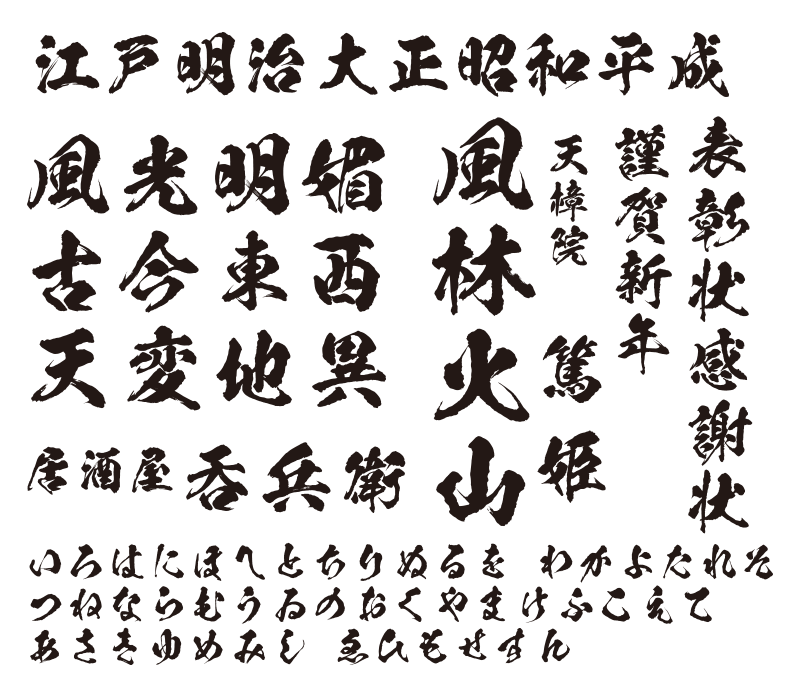 江戸明治大正昭和平成
風光明媚
古今東西
天変地異
居酒屋
呑兵衛
風林火山
天樟院
篤姫
謹賀新年
表彰状
感謝状
いろはにほへとちりぬるを わかよたれそ
つねならむうゐのおくやまけふこえて
あさきゆめみし ゑひもせすん